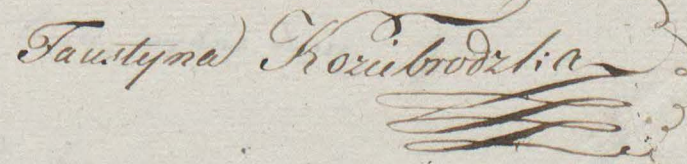 Faustyna Koziebrodzka